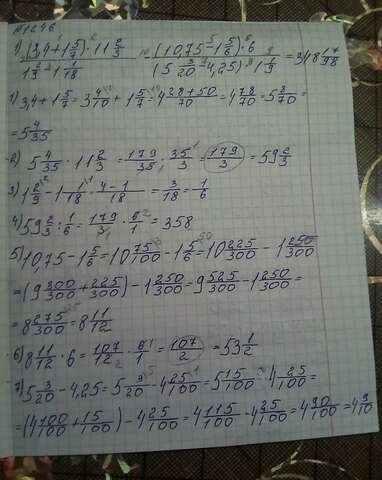 №1246
1) (3,4+1 5/7)·11 2/3 / 1 2/9 - 1 1/18 - (10,75-1 5/6)·6 / (5 3/20-4,25)·1 1/9 = 348 17/98
1) 3,4+1 5/7=3 4/10+1 5/7=4 28+50/70=4 78/70=5 8/70=
=5 4/35
2) 5 4/35·11 2/3=179/35·35/3=179/3=59 2/3
3) 1 2/9-1 1/18=4-1/18=3/18=1/6
4) 59 2/3:1/6=179/3·6/1=358
5) 10,75-1 5/6=10 75/100-1 5/6=10 225/300-1 250/300=
=(9 300/300+225/300)-1 250/300=9 525/300-1 250/300=
=8 275/300=8 11/12
6) 8 11/12·6=107/12·6/1=107/2=53 1/2
7) 5 3/20-4,25=5 3/20-4 25/100=5 15/100-4 25/100=
=(4 100/100+15/100)-4 25/100=4 115/100-4 25/100=4 90/100=4 9/10